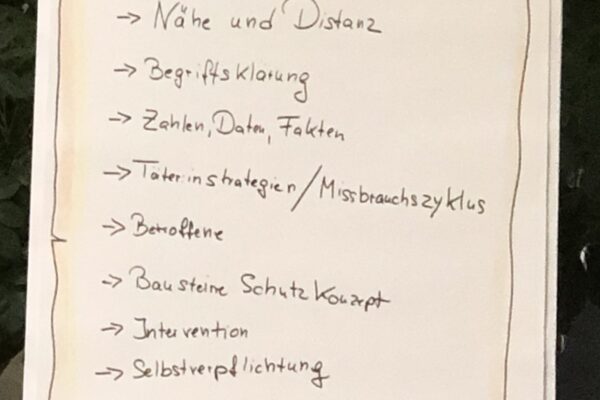 → Nähe und Distanz
→ Begriffsklärung
→ Zahlen, Daten, Fakten
→ Täter:instrategien/Missbrauchszyklus
→ Betroffene
→ Bausteine Schutzkonzept
→ Intervention
→ Selbstverpflichtung